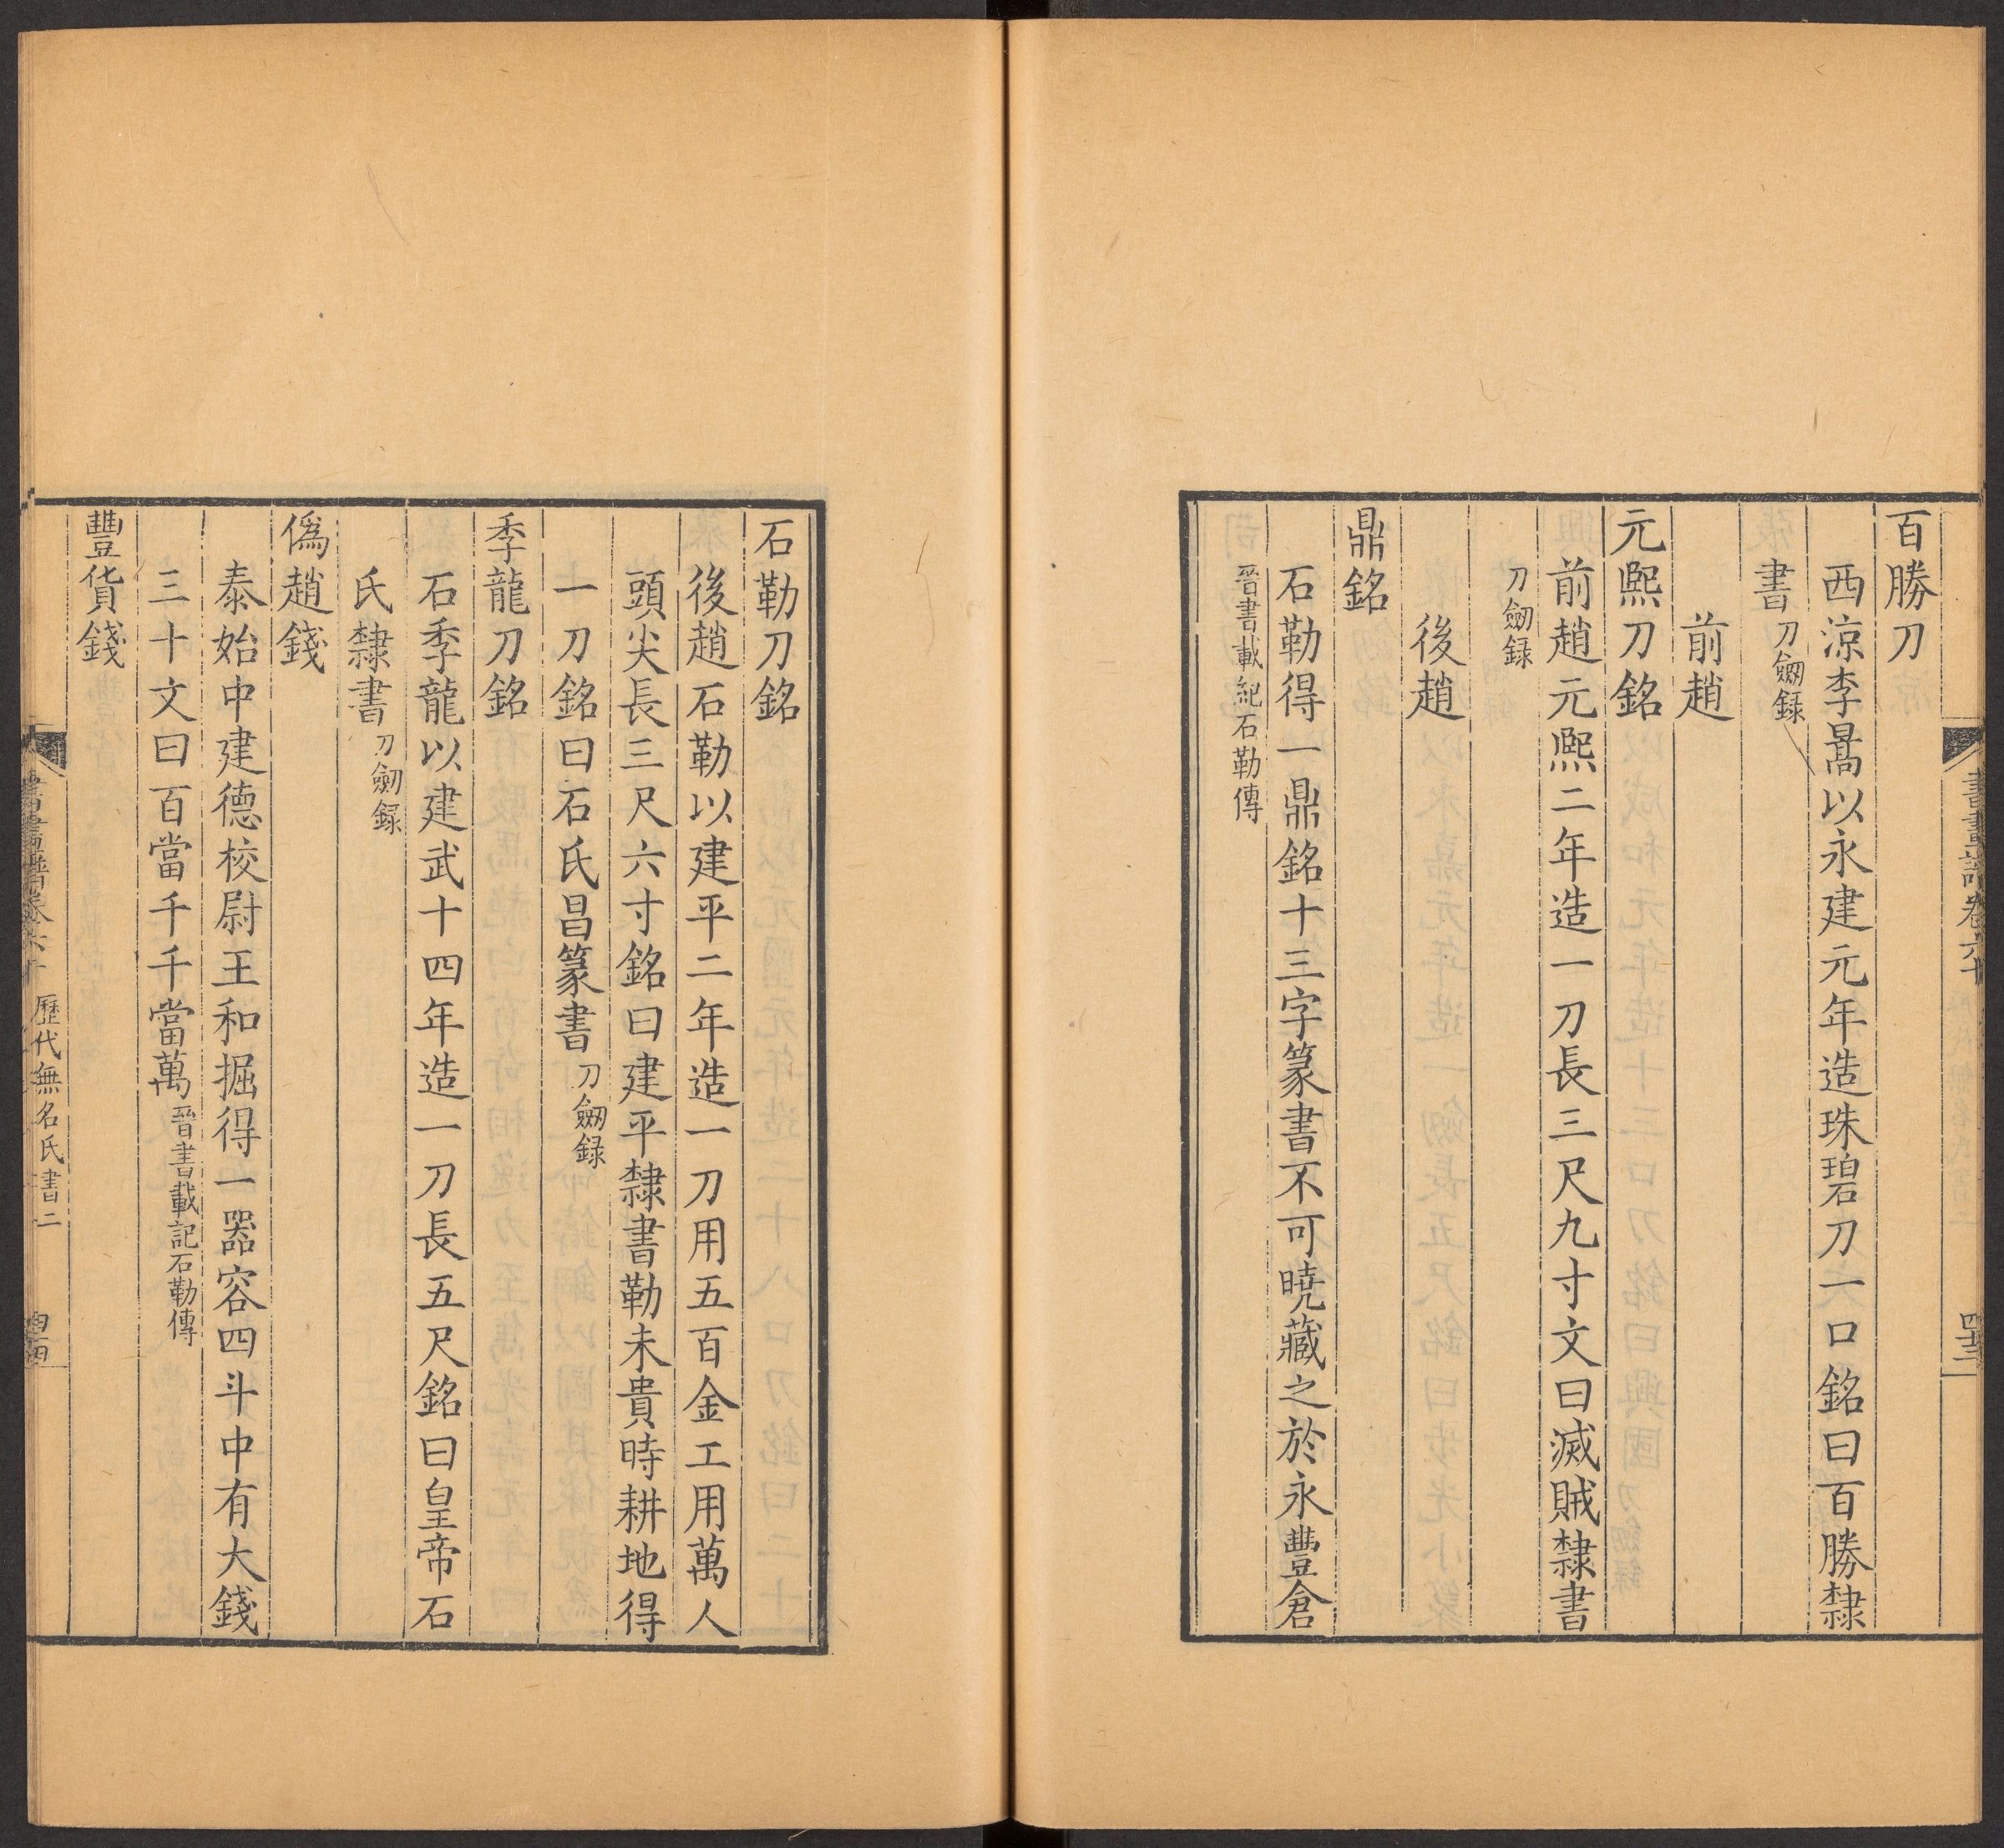 百勝刀
西涼李暠以永建元年造珠碧刀一口銘曰百勝隸
書刀劒録
前趙
元熙刀銘
前趙元熙二年造一刀長三尺九寸文曰滅賊隸書
刀劒録
後趙
鼎銘
石勒得一鼎銘十三字篆書不可曉藏之於永豐倉
晉書載紀石勒傳
石勒刀銘
後趙石勒以建平二年造一刀用五百金工用萬人
頭尖長三尺六寸銘曰建平隸書勒未貴時耕地得
一刀銘曰石氏昌篆書刀劒録
季龍刀銘
石季龍以建武十四年造一刀長五尺銘曰皇帝石
氏隸書刀劒録
偽趙錢
泰始中建德校尉王和掘得一器容四斗中有大錢
三十文曰百當千千當萬晉書載記石勒傳
豐貨錢
書畫譜卷六十
歷代無名氏書二